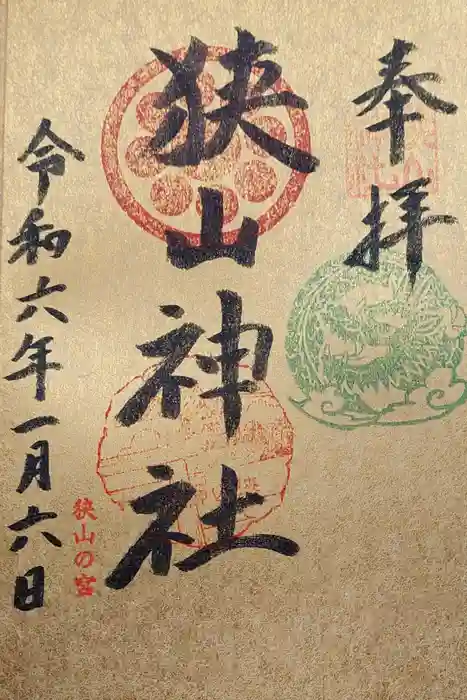 奉拝
狭山神社
狭山の宮
令和六年一月六日